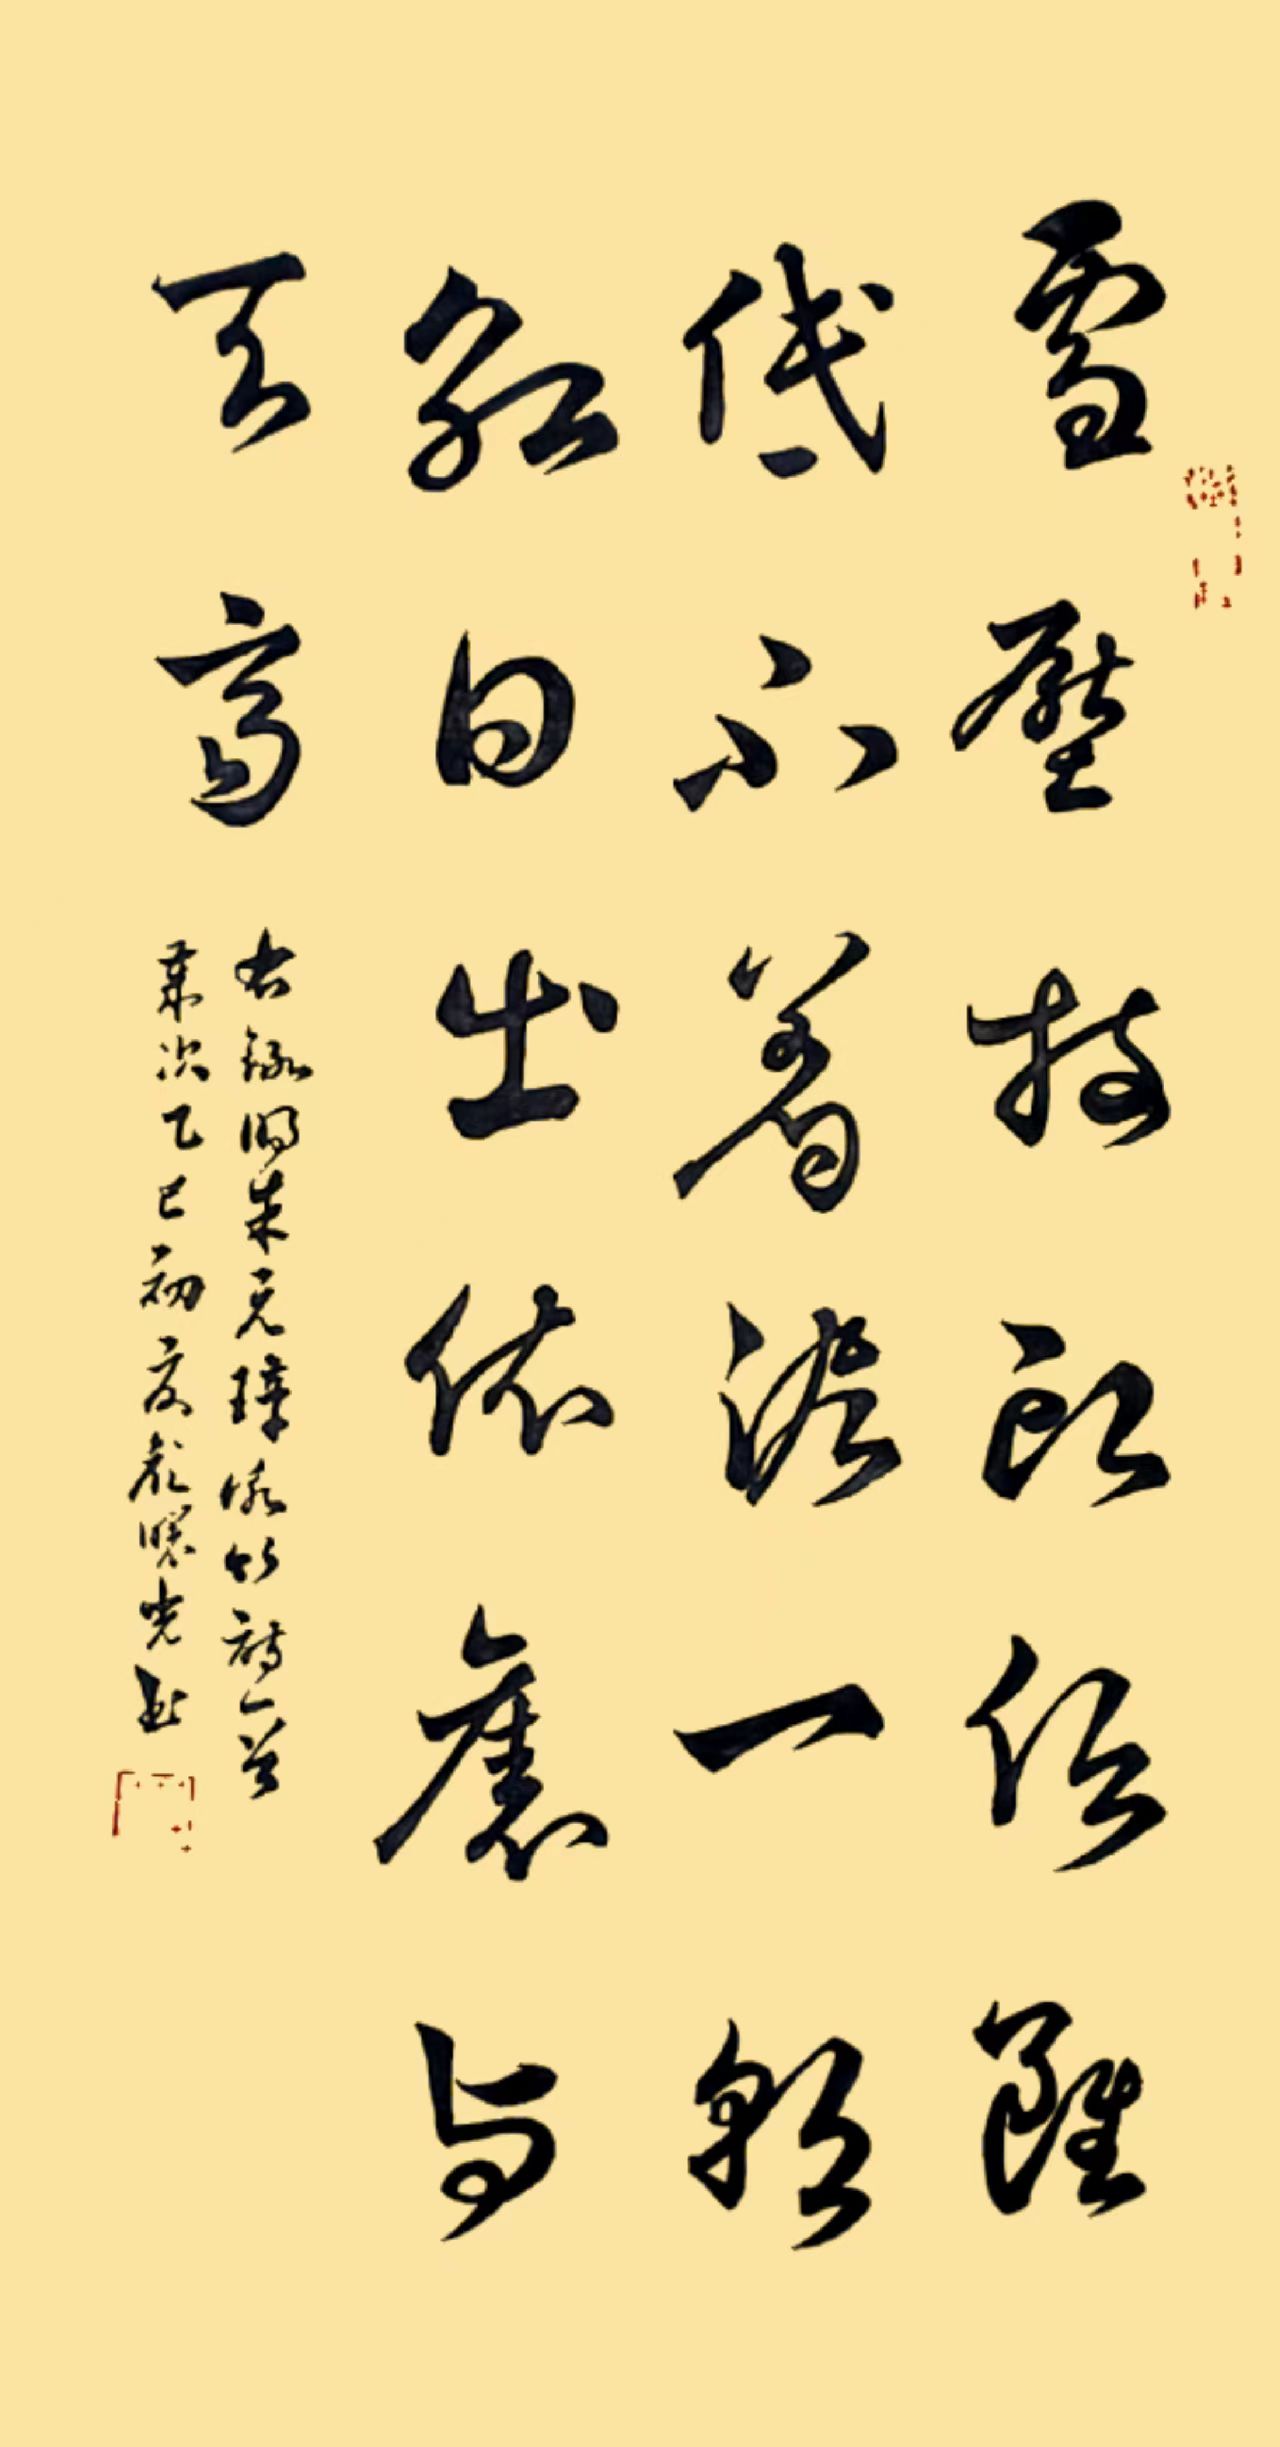 雪壓枝頭低雖
低不著泥一朝
紅日出依舊與
天齊
右錄明朱元璋詠竹詩一首
歲次乙巳初夏 曉光書